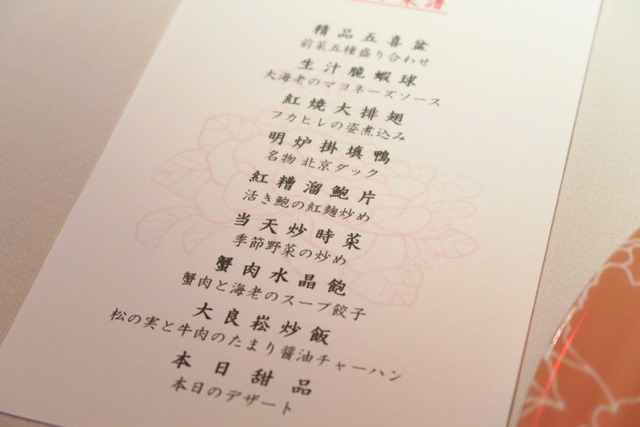 菜譜
精品五喜盆
前菜五種盛り合わせ
生汁脆蝦球
大海老のマヨネーズソース
紅焼大排翅
フカヒレの姿煮込み
明炉掛填鴨
名物 北京ダック
紅糟溜鮑片
活き鮑の紅麹炒め
当天炒時菜
季節野菜の炒め
蟹肉水晶飽
蟹肉と海老のスープ餃子
大良崧炒飯
松の実と牛肉のたまり醤油チャーハン
本日甜品
本日のデザート